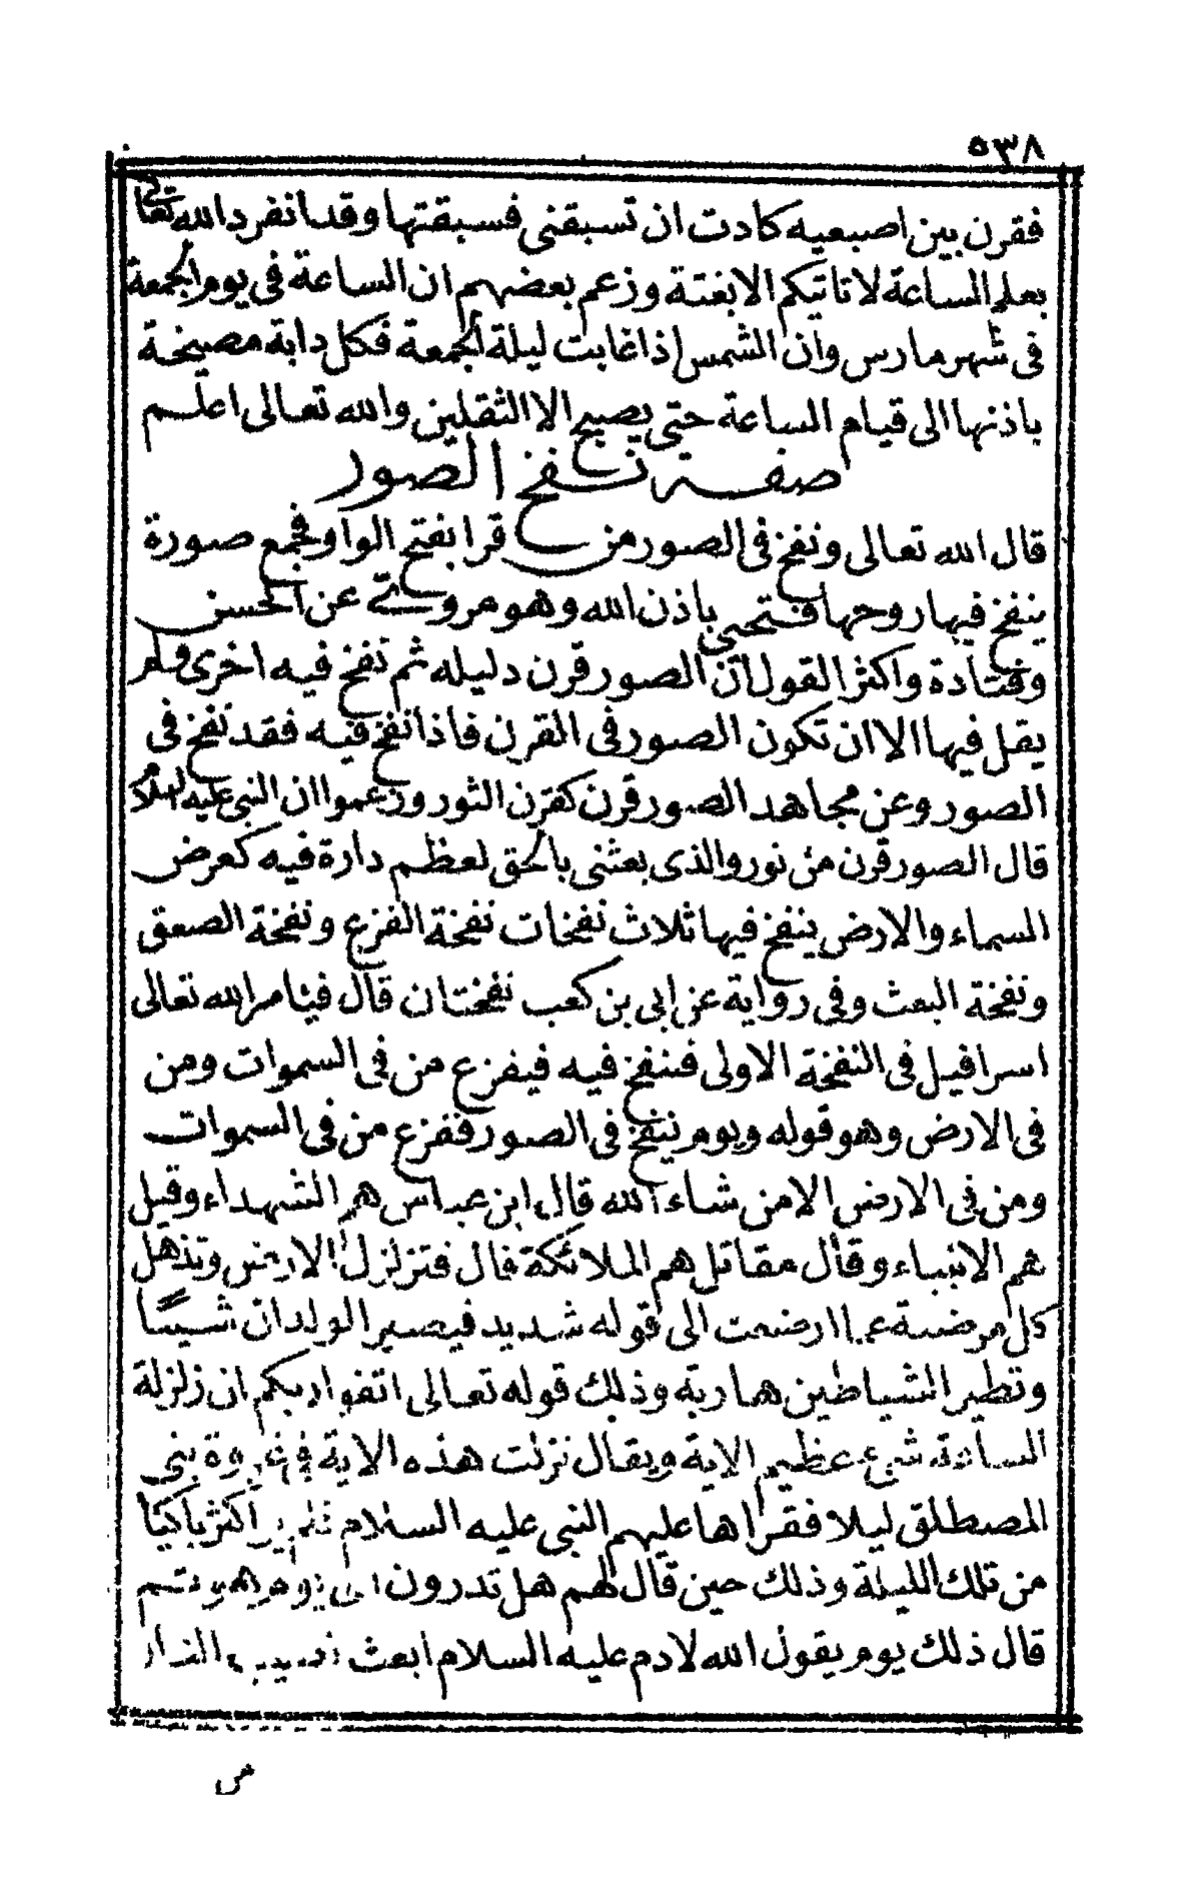 ٥٣٨
فقرن بين اصبعيه كادت ان تسبقني فسبقتها وقد انفرد الله تعالى
بعلم الساعة لا تاتيكم الا بغتة وزعم بعضهم ان الساعة في يوم الجمعة
في شهر مارس وان الشمس اذا غابت ليلة الجمعة فكل دابة مصيخة
باذنها الى قيام الساعة حتى يصبح الا الثقلين والله تعالى اعلم
صفة نفخ الصور
قال الله تعالى ونفخ في الصور من قرا بفتح الواو فجمع صورة
ينفخ فيها روحها فتحيى باذن الله وهو مروي عن الحسن
وقتادة واكثر القول ان الصور قرن دليله ثم نفخ فيه اخرى ولم
يقل فيها الا ان تكون الصور في القرن فاذا نفخ فيه فقد نفخ في
الصور وعن مجاهد الصور قرن كقرن الثور وزعموا ان النبي عليه السلام
قال الصور قرن من نور والذي بعثني بالحق لعظم دارة فيه كعرض
السماء والارض ينفخ فيها ثلاث نفخات نفخة الفزع ونفخة الصعق
ونفخة البعث وفي رواية عن ابي بن كعب نفختان قال فيامر الله تعالى
اسرافيل في النفخة الاولى فنفخ فيه فيفزع من في السموات ومن
في الارض وهو قوله ويوم ينفخ في الصور ففزع من في السموات
ومن في الارض الا من شاء الله قال ابن عباس هم الشهداء وقيل
هم الانبياء وقال مقاتل هم الملائكة قال فتزلزل الارض وتذهل
كل مرضعة عما ارضعت الى قوله شديد فيصير الولدان شيبًا
وتطير الشياطين هاربة وذلك قوله تعالى اتقوا ربكم ان زلزلة
الساعة شيء عظيم الاية ويقال نزلت هذه الاية في غزوة بني
المصطلق ليلا فقراها عليهم النبي عليه السلام فلم ير اكثر باكيًا
من تلك الليلة وذلك حين قال لهم هل تدرون اي يوم هو
قال ذلك يوم يقول الله لادم عليه السلام ابعث نصيب النار